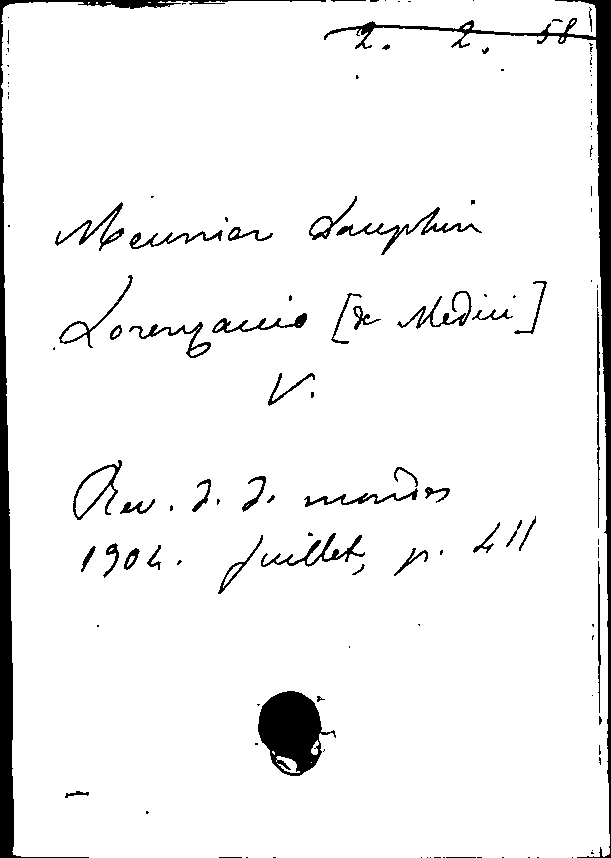 2. 2. 58
Meunier Dauphin
Lorenzaccio [de Medici]
V.
Rev. d. d. mondes
1904. Juillet, p. 411